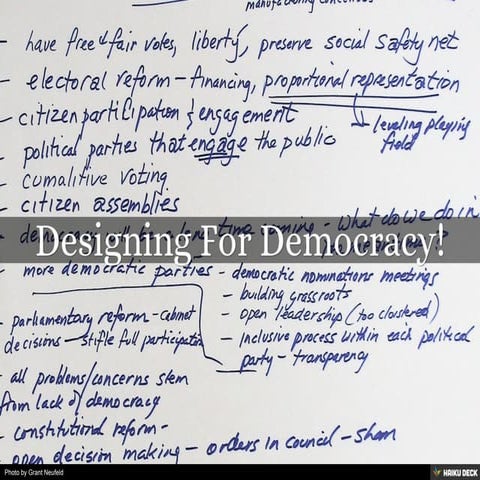 manufacturing
- have free & fair votes, liberty, preserve social safety net
- electoral reform - financing, proportional representation
leveling playing field
- citizen participation & engagement
- political parties that engage the public
- cumalitive voting
- citizen assemblies
- what do we do in
Designing For Democracy!
- more democratic parties - democratic nominations meetings
- building grassroots
- open leadership (too cloistered)
- inclusive process within each political
party - transparency
- parliamentary reform - cabinet
decisions - stifle full participation
- all problems/concerns stem
from lack of democracy
- constitutional reform -
- open decision making - orders in council - sham
Photo by Grant Neufeld
HAIKU DECK